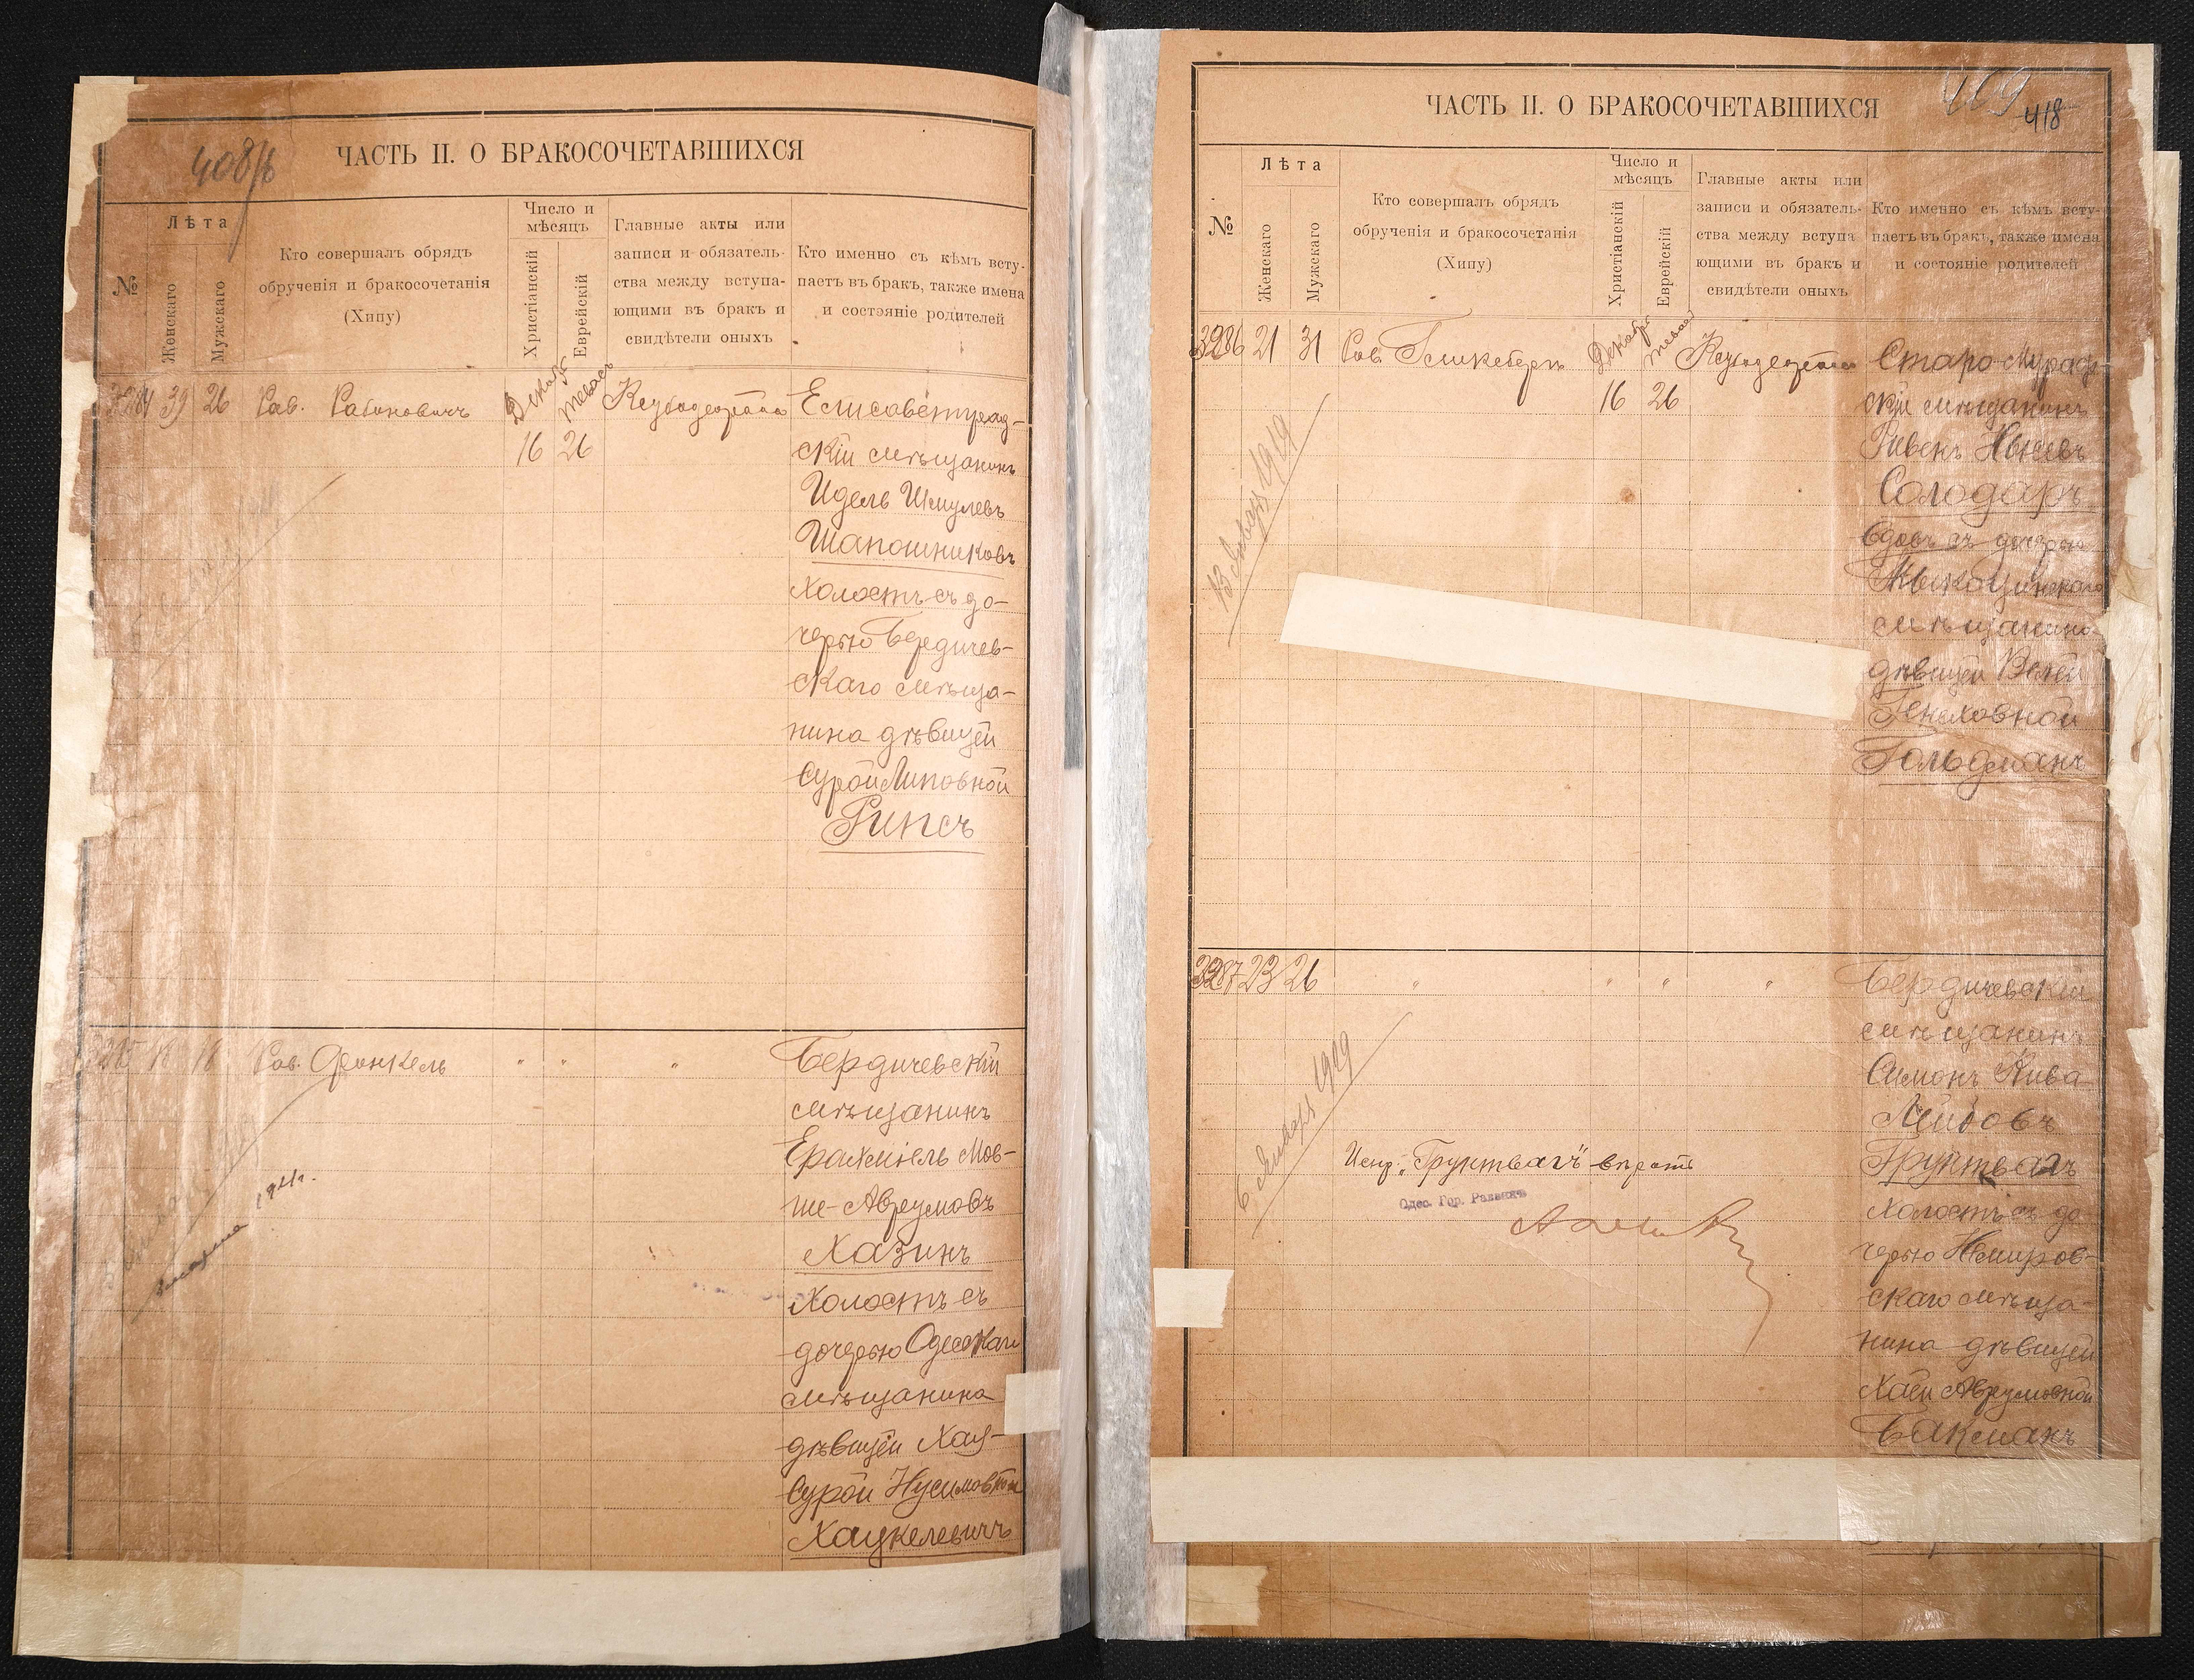 408/б
ЧАСТЬ II. О БРАКОСОЧЕТАВШИХСЯ
№
Лѣта
Женскаго
Мужскаго
Кто совершалъ обрядъ
обрученія и бракосочетанія
(Хипу)
Число и
мѣсяцъ
Христіанскій
Еврейскій
Главные акты или
записи и обязатель-
ства между вступа-
ющими въ бракъ и
свидѣтели оныхъ
Кто именно съ кѣмъ всту-
паетъ въ бракъ, также имена
и состояніе родителей
3284 39 26 Рав. Рабиновичъ
16 26
Елисаветград-
скій мѣщанинъ
Идель Шмулевъ
Шапошниковъ
холостъ съ до-
черью Бердичев-
скаго мѣща-
нина дѣвицей
Сурой Липовной
Рипсъ
3285 18 18 Рав. Френкель " " "
Бердичевскій
мѣщанинъ
Ерахміель Мов-
ше-Аврумовъ
Хазинъ
холостъ съ
дочерью Одесскаго
мѣщанина
дѣвицей Хая-
Сурой Нусимовной
Хацкелевичъ
409
418
ЧАСТЬ II. О БРАКОСОЧЕТАВШИХСЯ
№
Лѣта
Женскаго
Мужскаго
Кто совершалъ обрядъ
обрученія и бракосочетанія
(Хипу)
Число и
мѣсяцъ
Христіанскій
Еврейскій
Главные акты или
записи и обязатель-
ства между вступа
ющими въ бракъ и
свидѣтели оныхъ
Кто именно съ кѣмъ всту-
паетъ въ бракъ, также имена
и состояніе родителей
3286 21 31 Рав.
16 26
Старо-Мураф-
скій мѣщанинъ
Рувенъ
Солодаръ
вдовъ съ дочерью
мѣщанина
дѣвицей
Гольдманъ
3287 23 26 " " " "
6 Января 1919
Бердичевскій
мѣщанинъ
Симонъ Кива
Лейбовъ
Грунтвагъ
холостъ съ до-
черью Немиров-
скаго мѣща-
нина дѣвицей
Хаей Аврумовной
Бакманъ
Испр. „Грунтвагъ" вѣрить
Одес. Гор. Раввинъ